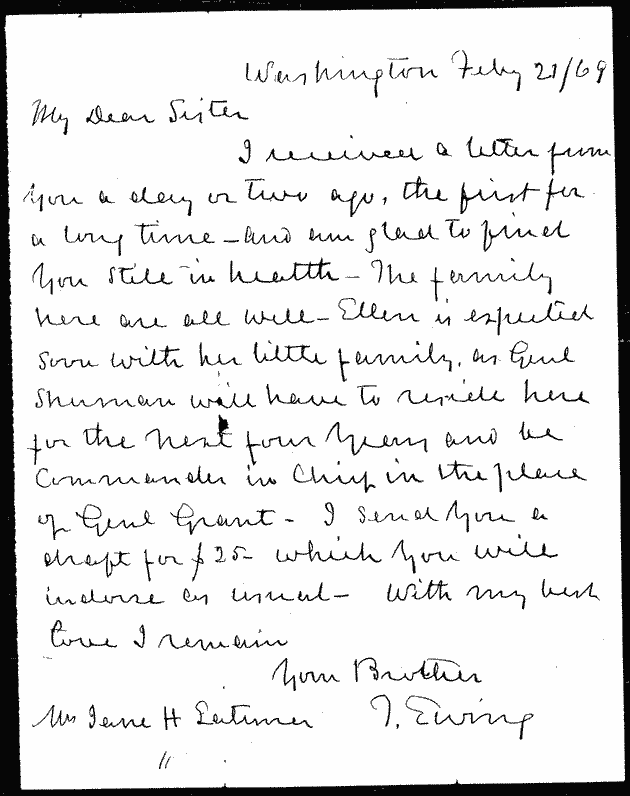 Washington Feby 21/69
My Dear Sister
I received a letter from
you a day or two ago, the first for
a long time - and am glad to find
you still in health - The family
here are all well - Ellen is expected
soon with her little family, as Genl
Sherman will have to reside here
for the next four years and be
Commander in Chief in the place
of Genl Grant - I send you a
draft for $25- which you will
indorse as usual - With my best
love I remain
Your Brother
Mrs Jane H Latimer T. Ewing